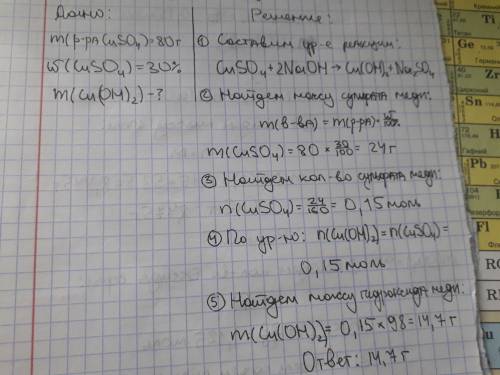 Дано:
m(р-ра CuSO₄)=80 г
ω(CuSO₄)=30%
m(Cu(OH)₂)-?
Решение:
① Составим ур-е реакции:
CuSO₄+2NaOH→Cu(OH)₂+Na₂SO₄
② Найдем массу сульфата меди:
m(в-ва)=m(р-ра)×ω/100%
m(CuSO₄)=80×30/100=24 г
③ Найдем кол-во сульфата меди:
n(CuSO₄)=24/160=0,15 моль
④ По ур-ю: n(Cu(OH)₂)=n(CuSO₄)=
0,15 моль
⑤ Найдем массу гидроксида меди:
m(Cu(OH)₂)=0,15×98=14,7 г
Ответ: 14,7 г
Ti
Титан
Ge
Германий
Zr
Цирконий
Sn
Олово
Hf
Гафний
Pb
Свинец
Fl